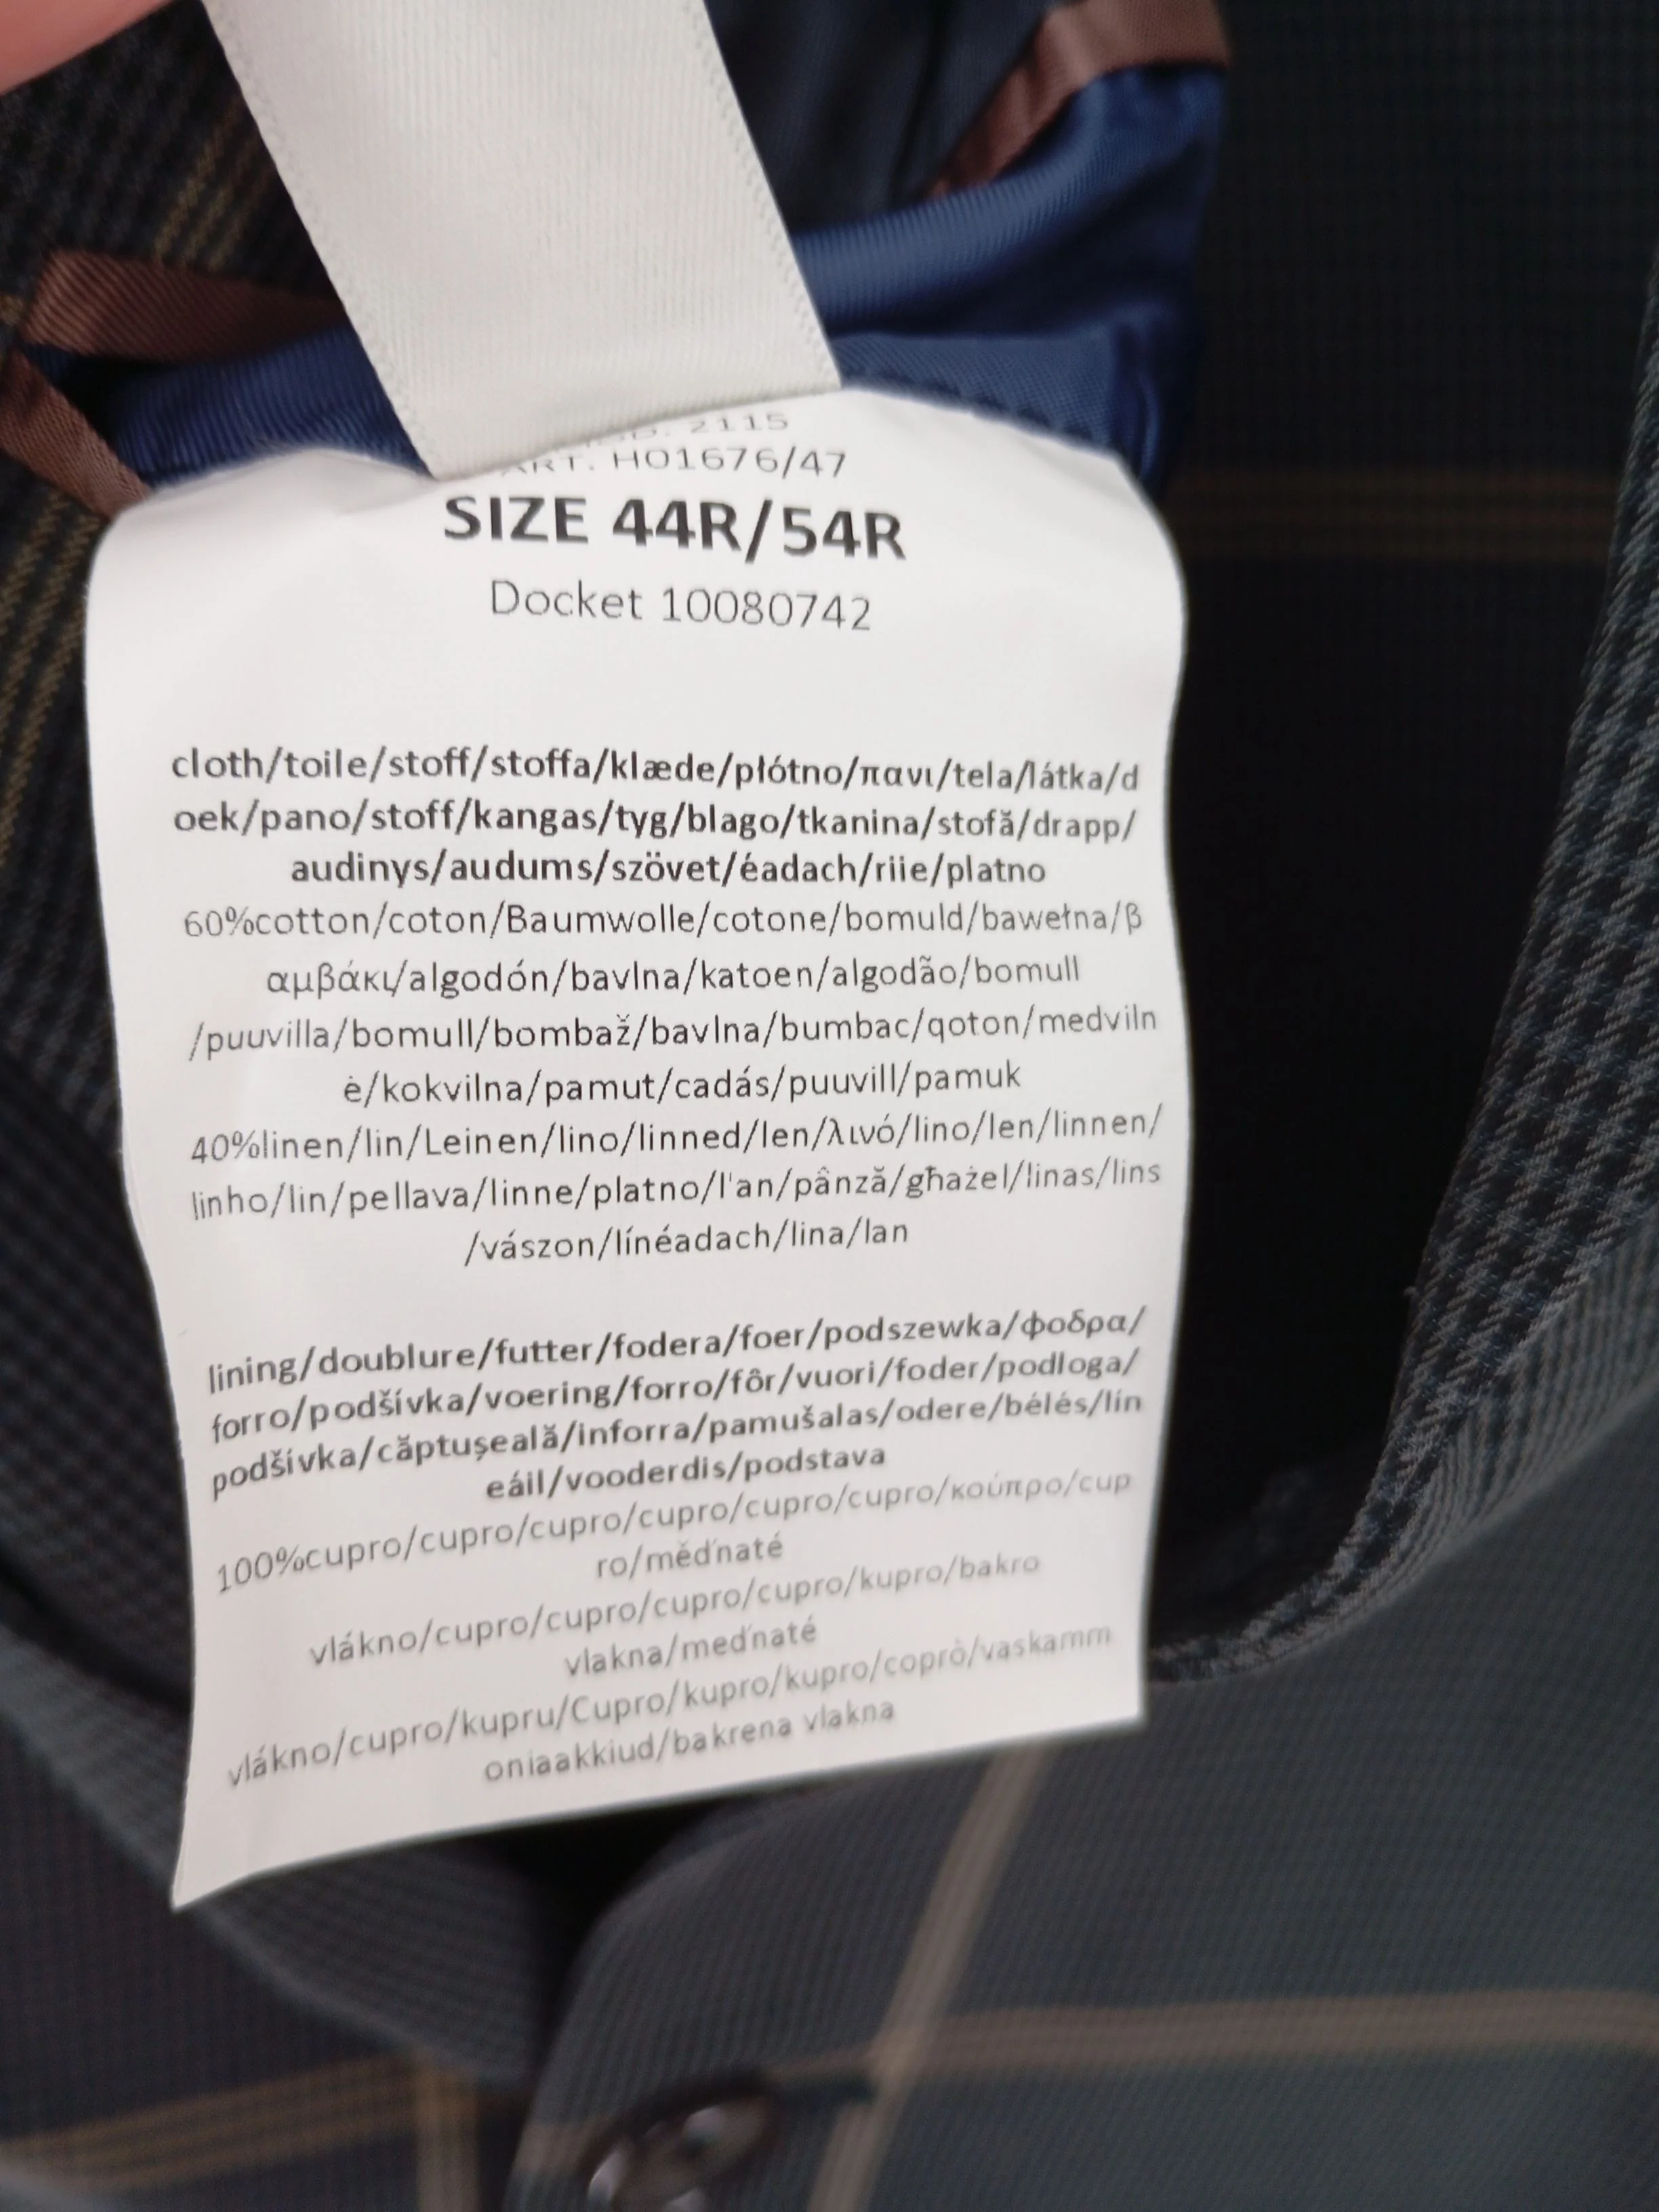 2115
ART. H01676/47
SIZE 44R/54R
Docket 10080742
cloth/toile/stoff/stoffa/klæde/płótno/πανι/tela/látka/d
oek/pano/stoff/kangas/tyg/blago/tkanina/stofă/drapp/
audinys/audums/szövet/éadach/riie/platno
60%cotton/coton/Baumwolle/cotone/bomuld/bawełna/β
αμβάκι/algodón/bavlna/katoen/algodão/bomull
/puuvilla/bomull/bombaž/bavlna/bumbac/qoton/medviln
ė/kokvilna/pamut/cadás/puuvill/pamuk
40%linen/lin/Leinen/lino/linned/len/λινό/lino/len/linnen/
linho/lin/pellava/linne/platno/l'an/pânză/għażel/linas/lins
/vászon/línéadach/lina/lan
lining/doublure/futter/fodera/foer/podszewka/φοδρα/
forro/podšívka/voering/forro/fôr/vuori/foder/podloga/
podšívka/căptușeală/inforra/pamušalas/odere/bélés/lín
eáil/vooderdis/podstava
100%cupro/cupro/cupro/cupro/cupro/cupro/κούπρο/cup
ro/měďnaté
vlákno/cupro/cupro/cupro/cupro/kupro/bakro
vlakna/meďnaté
vlákno/cupro/kupru/Cupro/kupro/kupro/coprò/vaskamm
oniaakkiud/bakrena vlakna